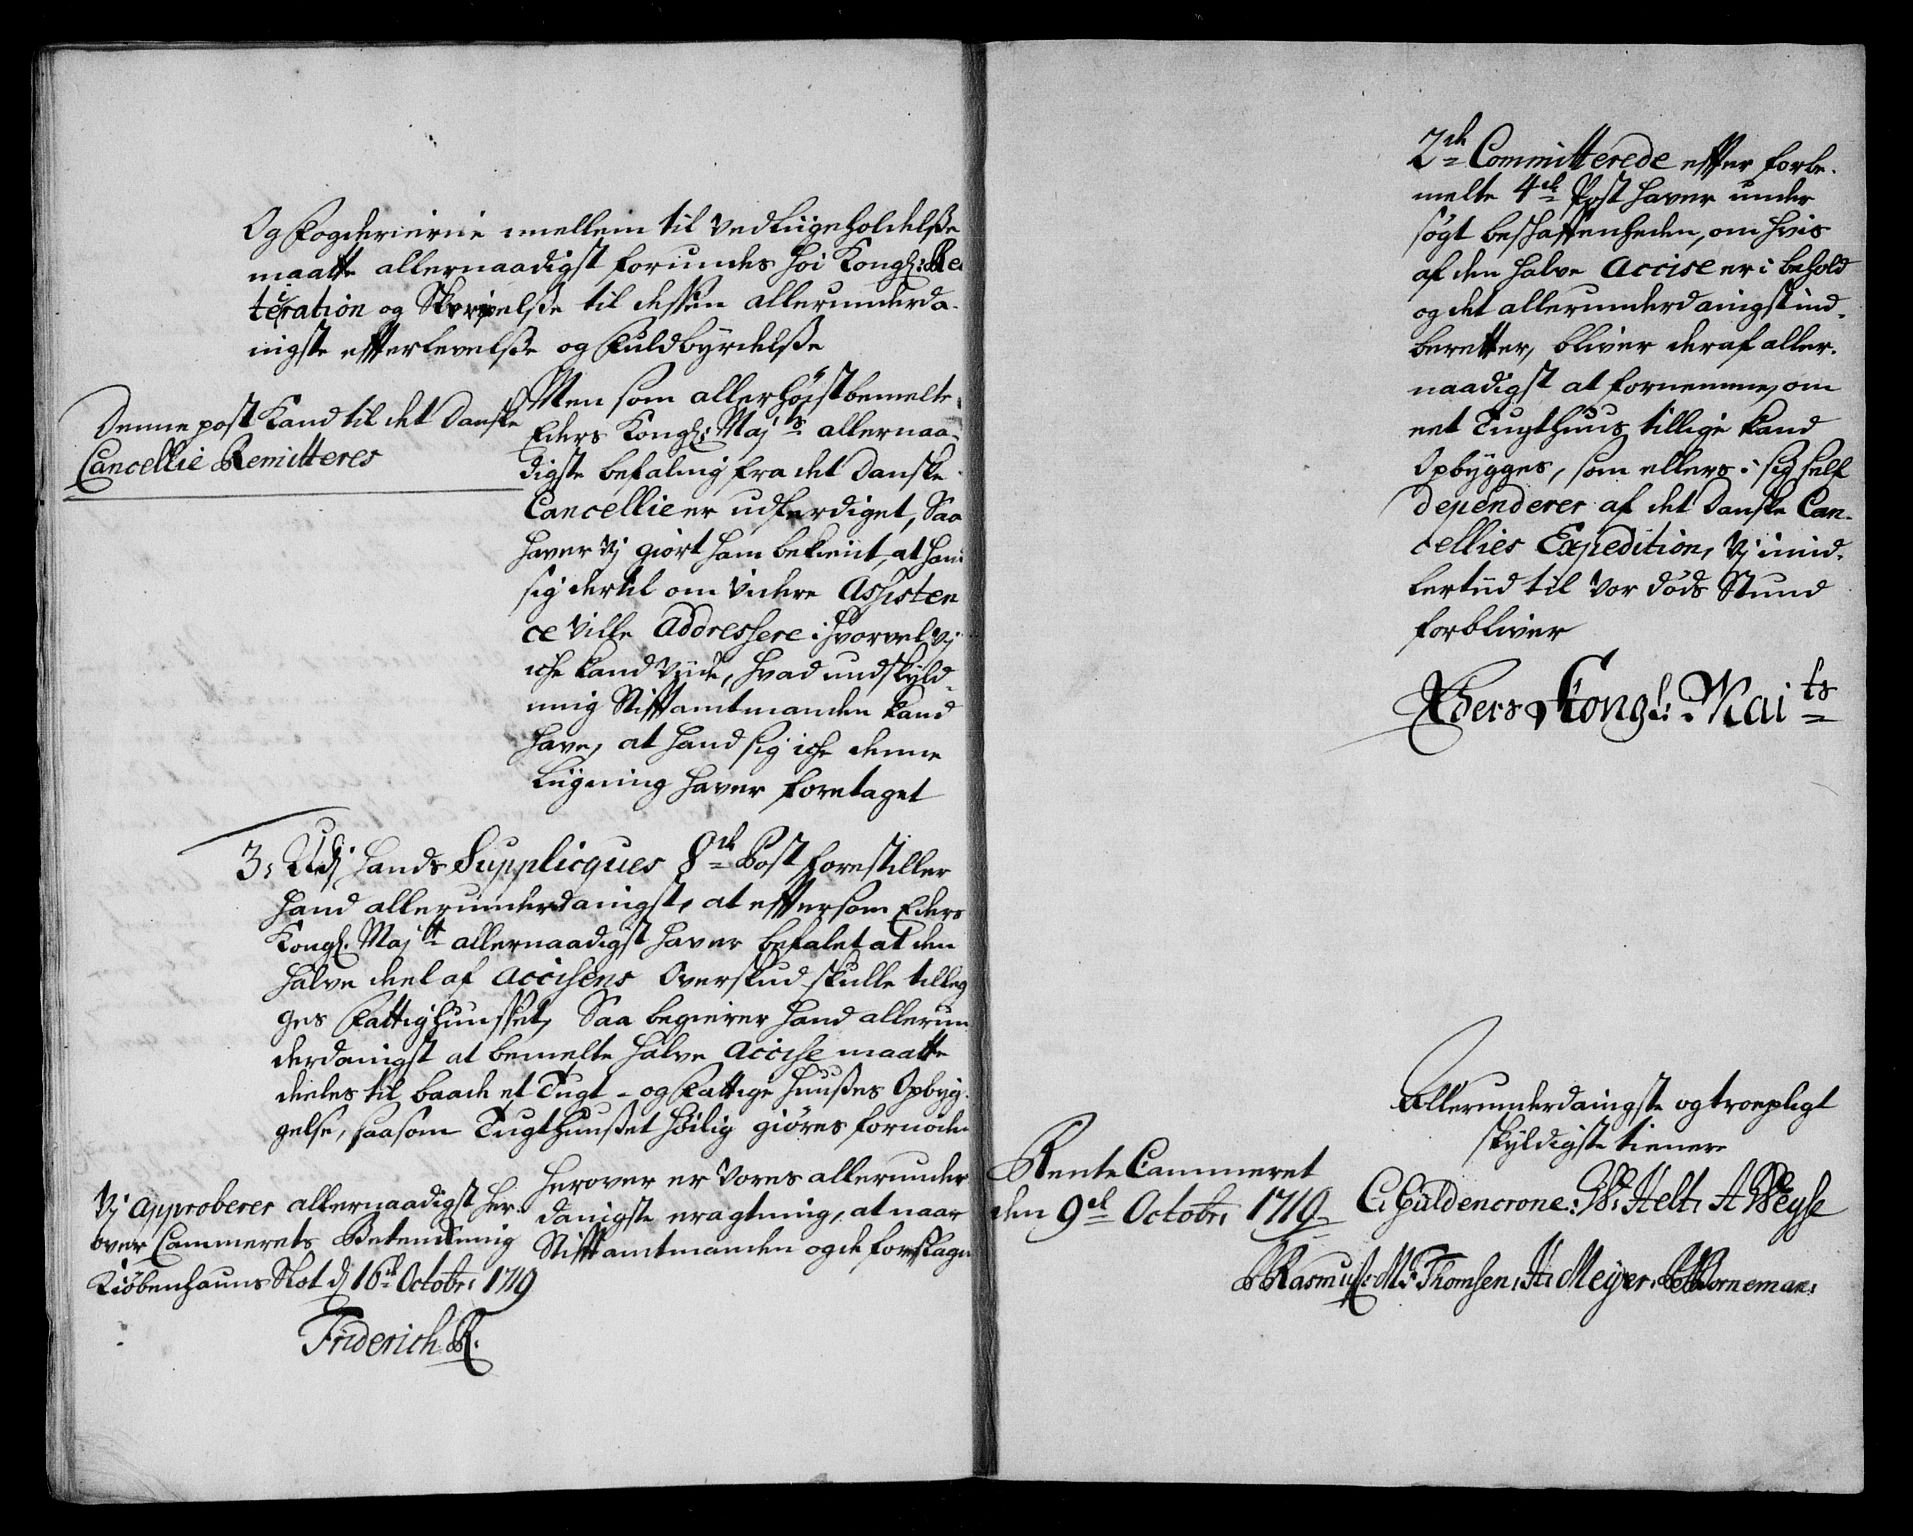 Og Fogderierne imellem til Vedliigeholdelße
maatte allernaadigst forundes høi Kongl: Re
iteration og Skrivelße til deßen allerunderda-
nigste efterlevelße og Fuldbyrdelße
Denne post Kand til det Danske
Cancellie Remitteres
Men som allerhøjstbemelte
Eders Kongl: Maj ts allernaa-
digste befaling fra det Danske
Cancellie er udferdiget, Saa
haver Vj giort ham bekient, at hand
sig dertil om Videre Assisten
ce Ville Addressere, i hvorvel Vj
iche kand Viide, hvad undskyld-
ning Stiftamtmanden kand
have, at hand sig iche denne
Liigning haver foretaget
3, Udj hands Supplicqves 8de Post forestiller
hand allerunderdanigst, at eftersom Eders
Kongl. Maj tt allernaadigst haver befalet at den
halve deel af Accisens Overskud skulle tilleg
ges Fattighuusset, Saa begierer hand allerun
derdanigst at bemelte halve Accise maatte
deeles til baade et Tugt- og Fattige Huußes Opbyg-
gelse, saasom Tugthuußet høilig giøres fornøden
Herover er Vores allerunder
danigste eragtning, at naar
Stiftamtmanden og de foreslagne
Vj Approberer allernaadigst her-
over Cammerets Betenkning
Kiøbenhauns Slot d 16de Octobr: 1719
Friderich R.
2de Committerede efter forbe-
melte 4de Post haver under
søgt beskaffenheden, om hvis
af den halve Accise er i behold
og det allerunderdanigst ind-
beretter, bliver deraf aller-
naadigst at fornemme, om
eet Tugthuus tillige kand
Opbygges, som ellers i sig self
dependerer af det Danske Can-
cellies Expedition, Vj imid-
lertiid til Vor døds Stund
forbliver
Eders Kongl: Mai ts
Allerunderdanigste og troepligt
skyldigste tienere
Rente Cammeret
den 9de Octobr: 1719
C. Güldencrone: W: Helt, A Weyse
BRasmuss: M: Thomsen, H: Meyer, Borneman: